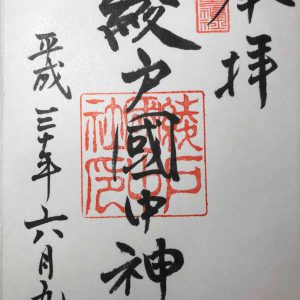 奉拝
綾戸國中神
綾戸國中社印
平成三十年六月九